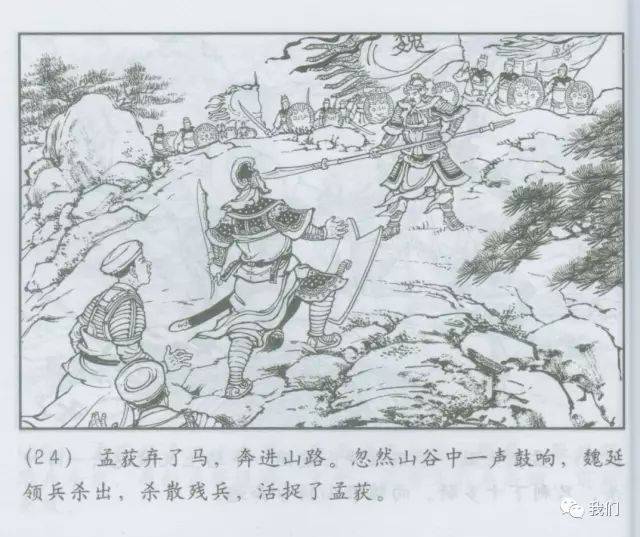 魏
(24) 孟获弃了马，奔进山路。忽然山谷中一声鼓响，魏延
领兵杀出，杀散残兵，活捉了孟获。
我们